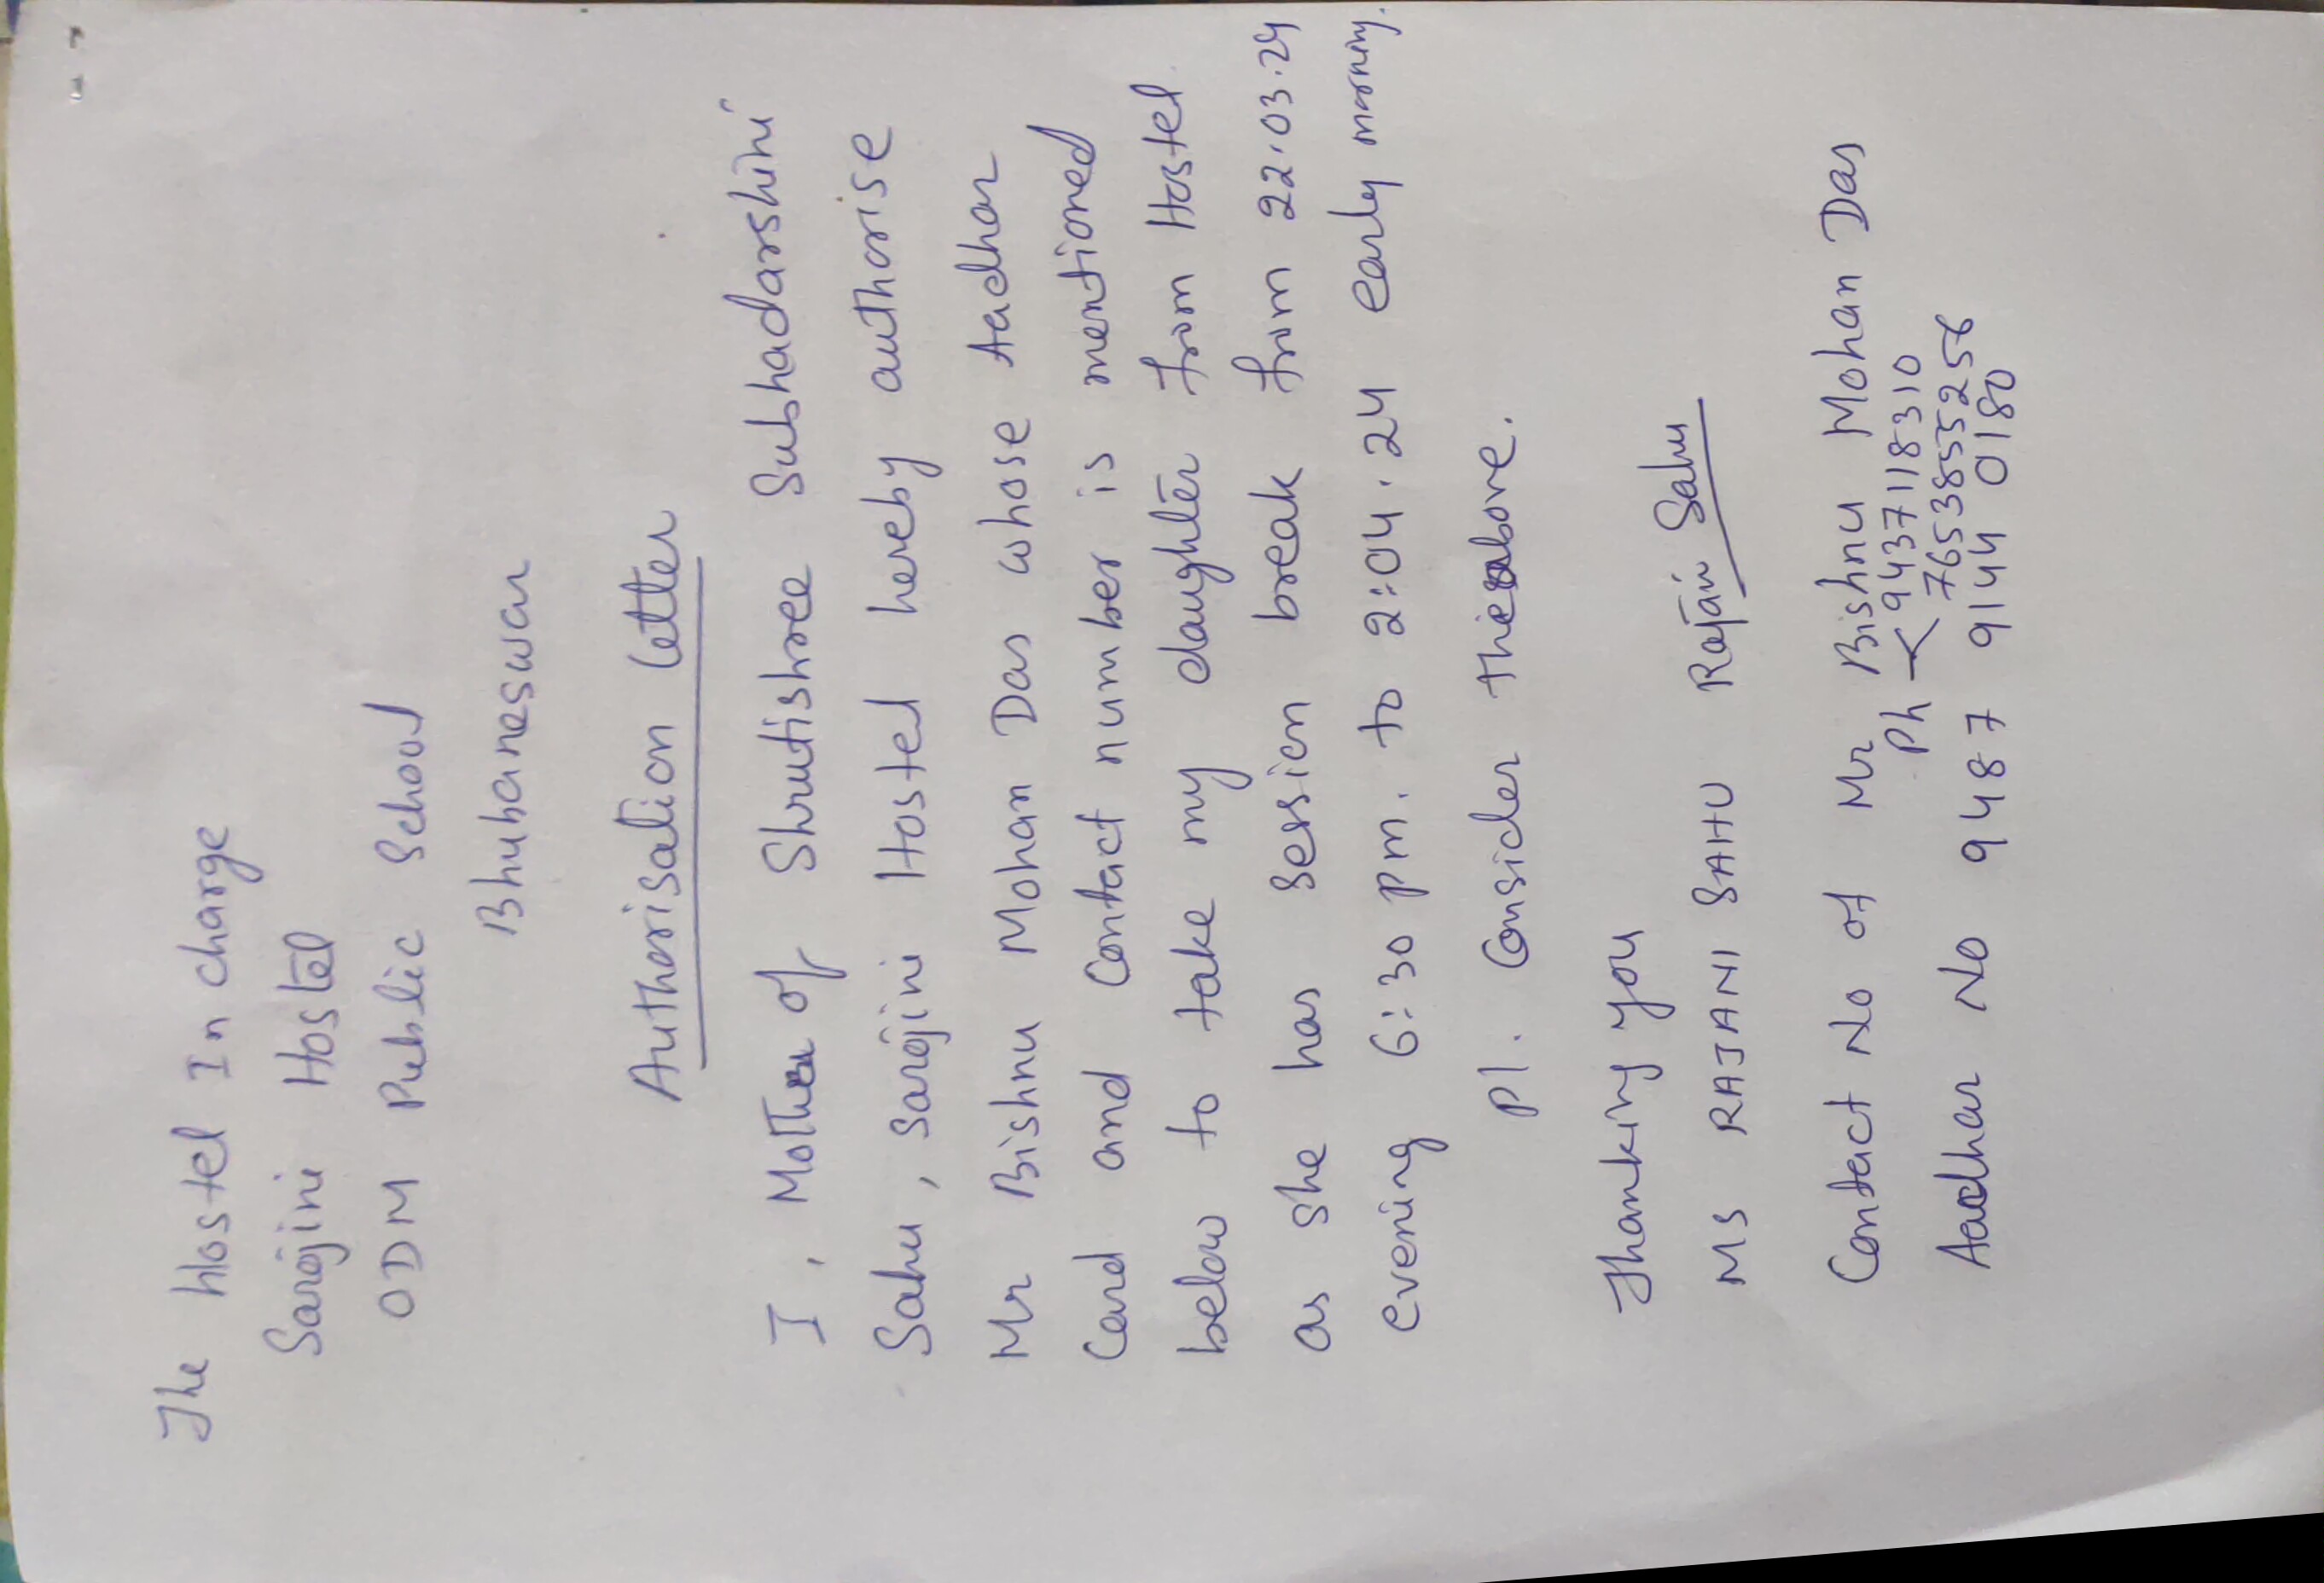 The Hostel In charge
Sarojini Hostel
ODM Public School
Bhubaneswar
Authorisation letter
I, Mother of Shrutishree Subhadarshini
Sahu, Sarojini Hostel hereby authorise
Mr Bishnu Mohan Das whose Aadhar
Card and Contact number is mentioned
below to take my daughter from Hostel
as she has session break from 22.03.24
evening 6:30 pm. to 2:04.24 early morning.
Pl. Consider the above.
Thanking you
MS RAJANI SAHU Rajani Sahu
Contact No of Mr Bishnu Mohan Das
Ph 9437118310
7653855256
Aadhar No 9487 9144 0180